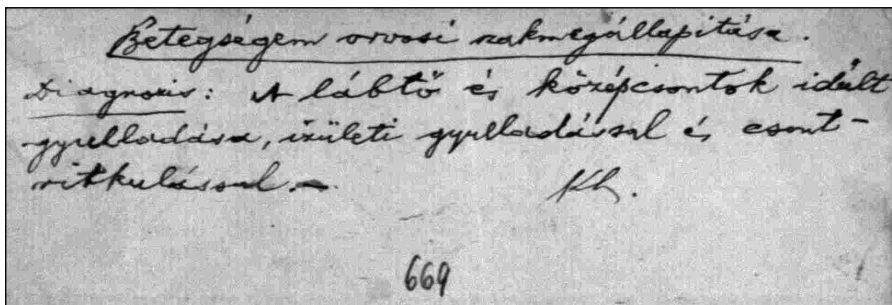 Betegségem orvosi szakmegállapitása.
Diagnozis: A lábtő és középcsontok idült
gyulladása, izületi gyulladással és csont-
ritkulással.-
Kh.
669